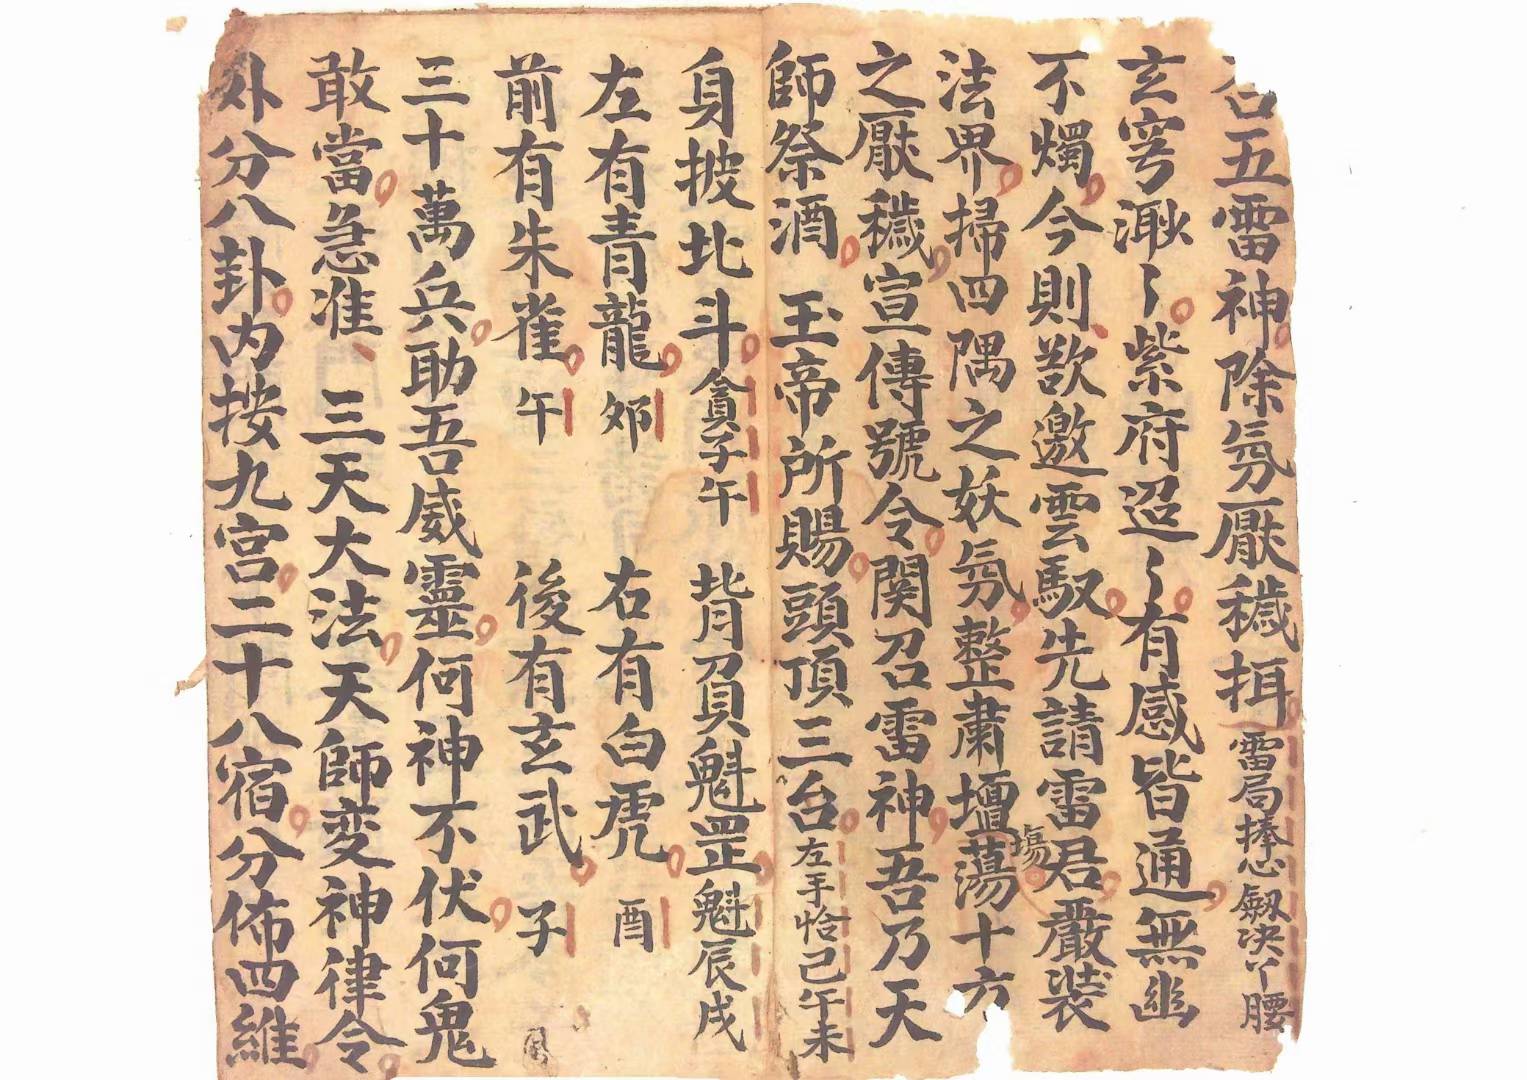 召五雷神除氛厭穢挕雷局捧心劔决丫腰
玄穹渺〻紫府迢〻有感皆通無幽
不燭今則欲邀雲馭先請雷君嚴裝
法界掃四隅之妖氛整肅壇蕩十方
塲
之厭穢宣傳號令関召雷神吾乃天
師祭酒 玉帝所賜頭頂三台左手恰己午未
身披北斗貪子午 背負魁罡魁辰戌
左有青龍夘 右有白虎酉
前有朱雀午 後有玄武子
三十萬兵助吾威靈何神不伏何鬼
敢當急准 三天大法天師変神律令
外分八卦内按九宫二十八宿分佈四維